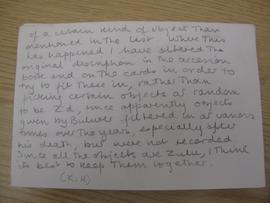 of a certain kind of object than
mentioned in the list. Where this
has happened I have altered the
original description in the accession
book and on the cards in order to
try to fit these in, rather than
picking certain objects at random
to be Z.d, since apparently objects
given by Bulwer filtered in at various
times over the years, especially after
his death, but were not recorded.
Since all the objects are Zulu, I think
its best to keep them together.
(K.H)